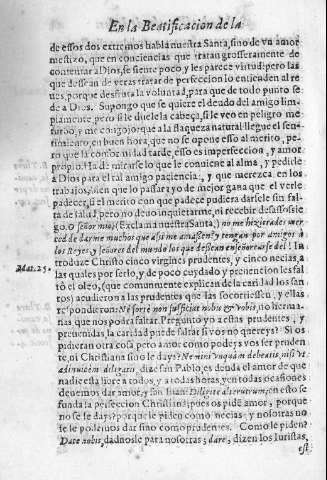 En la Beatificacion de la
de essos dos extremos habla nuestra Santa, sino de vn amor
mestizo, que en conciencias que tratan grosseramente de
contentar a Dios, se siente poco y les parece virtud: pero las
que dessean de veras tratar de perfeccion lo entienden al re
ues, porque desfruta la voluntad, para que de todo punto se
de a Dios. Supongo que se quiere el deudo del amigo lim-
piamente, pero si le duele la cabeça, si le veo en peligro me
turbo, y me congojo: que a la flaqueza natural llegue el sen-
timiento, en buen hora, que no se opone esso al merito, pe-
ro que la conformidad tarde, esso es imperfeccion, y amor
proprio. Ha de mirarse lo que le conuiene al alma, y pedirle
a Dios para el tal amigo paciencia, y que merezca en los
trabajos; bien que lo passara yo de mejor gana que el verle
padecer, si el merito con que padece pudiera darsele sin fal-
ta de salud, pero no deuo inquietarme, ni recebir desassossie
go. O señor mio, (Exclama nuestra Santa,) no me hizierades mer-
ced de darme muchos que assi me amassen? y tengan por amigos à
los Reyes, y señores del mundo los que dessean enseñorearse del! In
troduze Christo cinco virgines prudentes, y cinco necias, a
Mat. 25.
las quales por serlo, y de poco cuydado y preuencion les fal
tò el oleo, (que comunmente explican de la caridad los san
tos) acudieron a las prudentes que las socorriessen, y ellas
respondieron: Ne forte non sufficiat nobis & vobis, no herma-
nas que nos podra faltar. Pregunto yo a estas prudentes, y
preuenidas, la caridad puede faltar si vos no quereys? Si os
pidieran otra cosa pero amor como podeys vos ser pruden
te, ni Christiana sino le days? Nemini quidquam debeatis, nisi vt
adinuicem diligatis, dize san Pablo, es deuda el amor de que
nadie està libre a todos, y a todas horas, y en todas ocasiones
deuemos dar amor, y san Iuan: Diligite alterutrum, en esto se
funda la perfeccion Christiana, pues os pide amor, porque
no se le days? porque le piden como necias, y nosotras no
se le podemos dar sino como prudentes. Como le piden?
Date nobis, dadnosle para nosotras; dare, dizen los Iuristas,
est